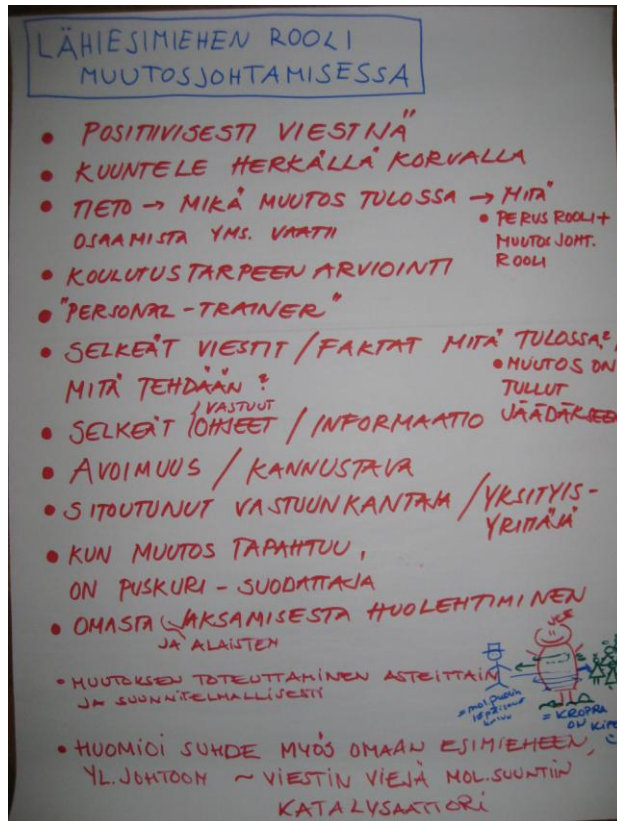 LÄHIESIMIEHEN ROOLI
MUUTOSJOHTAMISESSA
• POSITIIVISESTI VIESTIJÄ
• KUUNTELE HERKÄLLÄ KORVALLA
• TIETO → MIKÄ MUUTOS TULOSSA → MITÄ
OSAAMISTA YMS. VAATII
• PERUS ROOLI +
MUUTOSJOHT.
ROOLI
• KOULUTUSTARPEEN ARVIOINTI
• "PERSONAL-TRAINER"
• SELKEÄT VIESTIT / FAKTAT MITÄ TULOSSA?,
MITÄ TEHDÄÄN?
• MUUTOS ON
TULLUT
JÄÄDÄKSEEN
• SELKEÄT / OHJEET / INFORMAATIO
VASTUUT
• AVOIMUUS / KANNUSTAVA
• SITOUTUNUT VASTUUNKANTAJA / YKSITYIS-
YRITTÄJÄ
• KUN MUUTOS TAPAHTUU,
ON PUSKURI - SUODATTAJA
• OMASTA JAKSAMISESTA HUOLEHTIMINEN
JA ALAISTEN
• MUUTOKSEN TOTEUTTAMINEN ASTEITTAIN
JA SUUNNITELMALLISESTI
= KROPPA
ON KIPEÄ
• HUOMIOI SUHDE MYÖS OMAAN ESIMIEHEEN,
YL. JOHTOON ~ VIESTIN VIEJÄ MOL. SUUNTIIN
KATALYSAATTORI